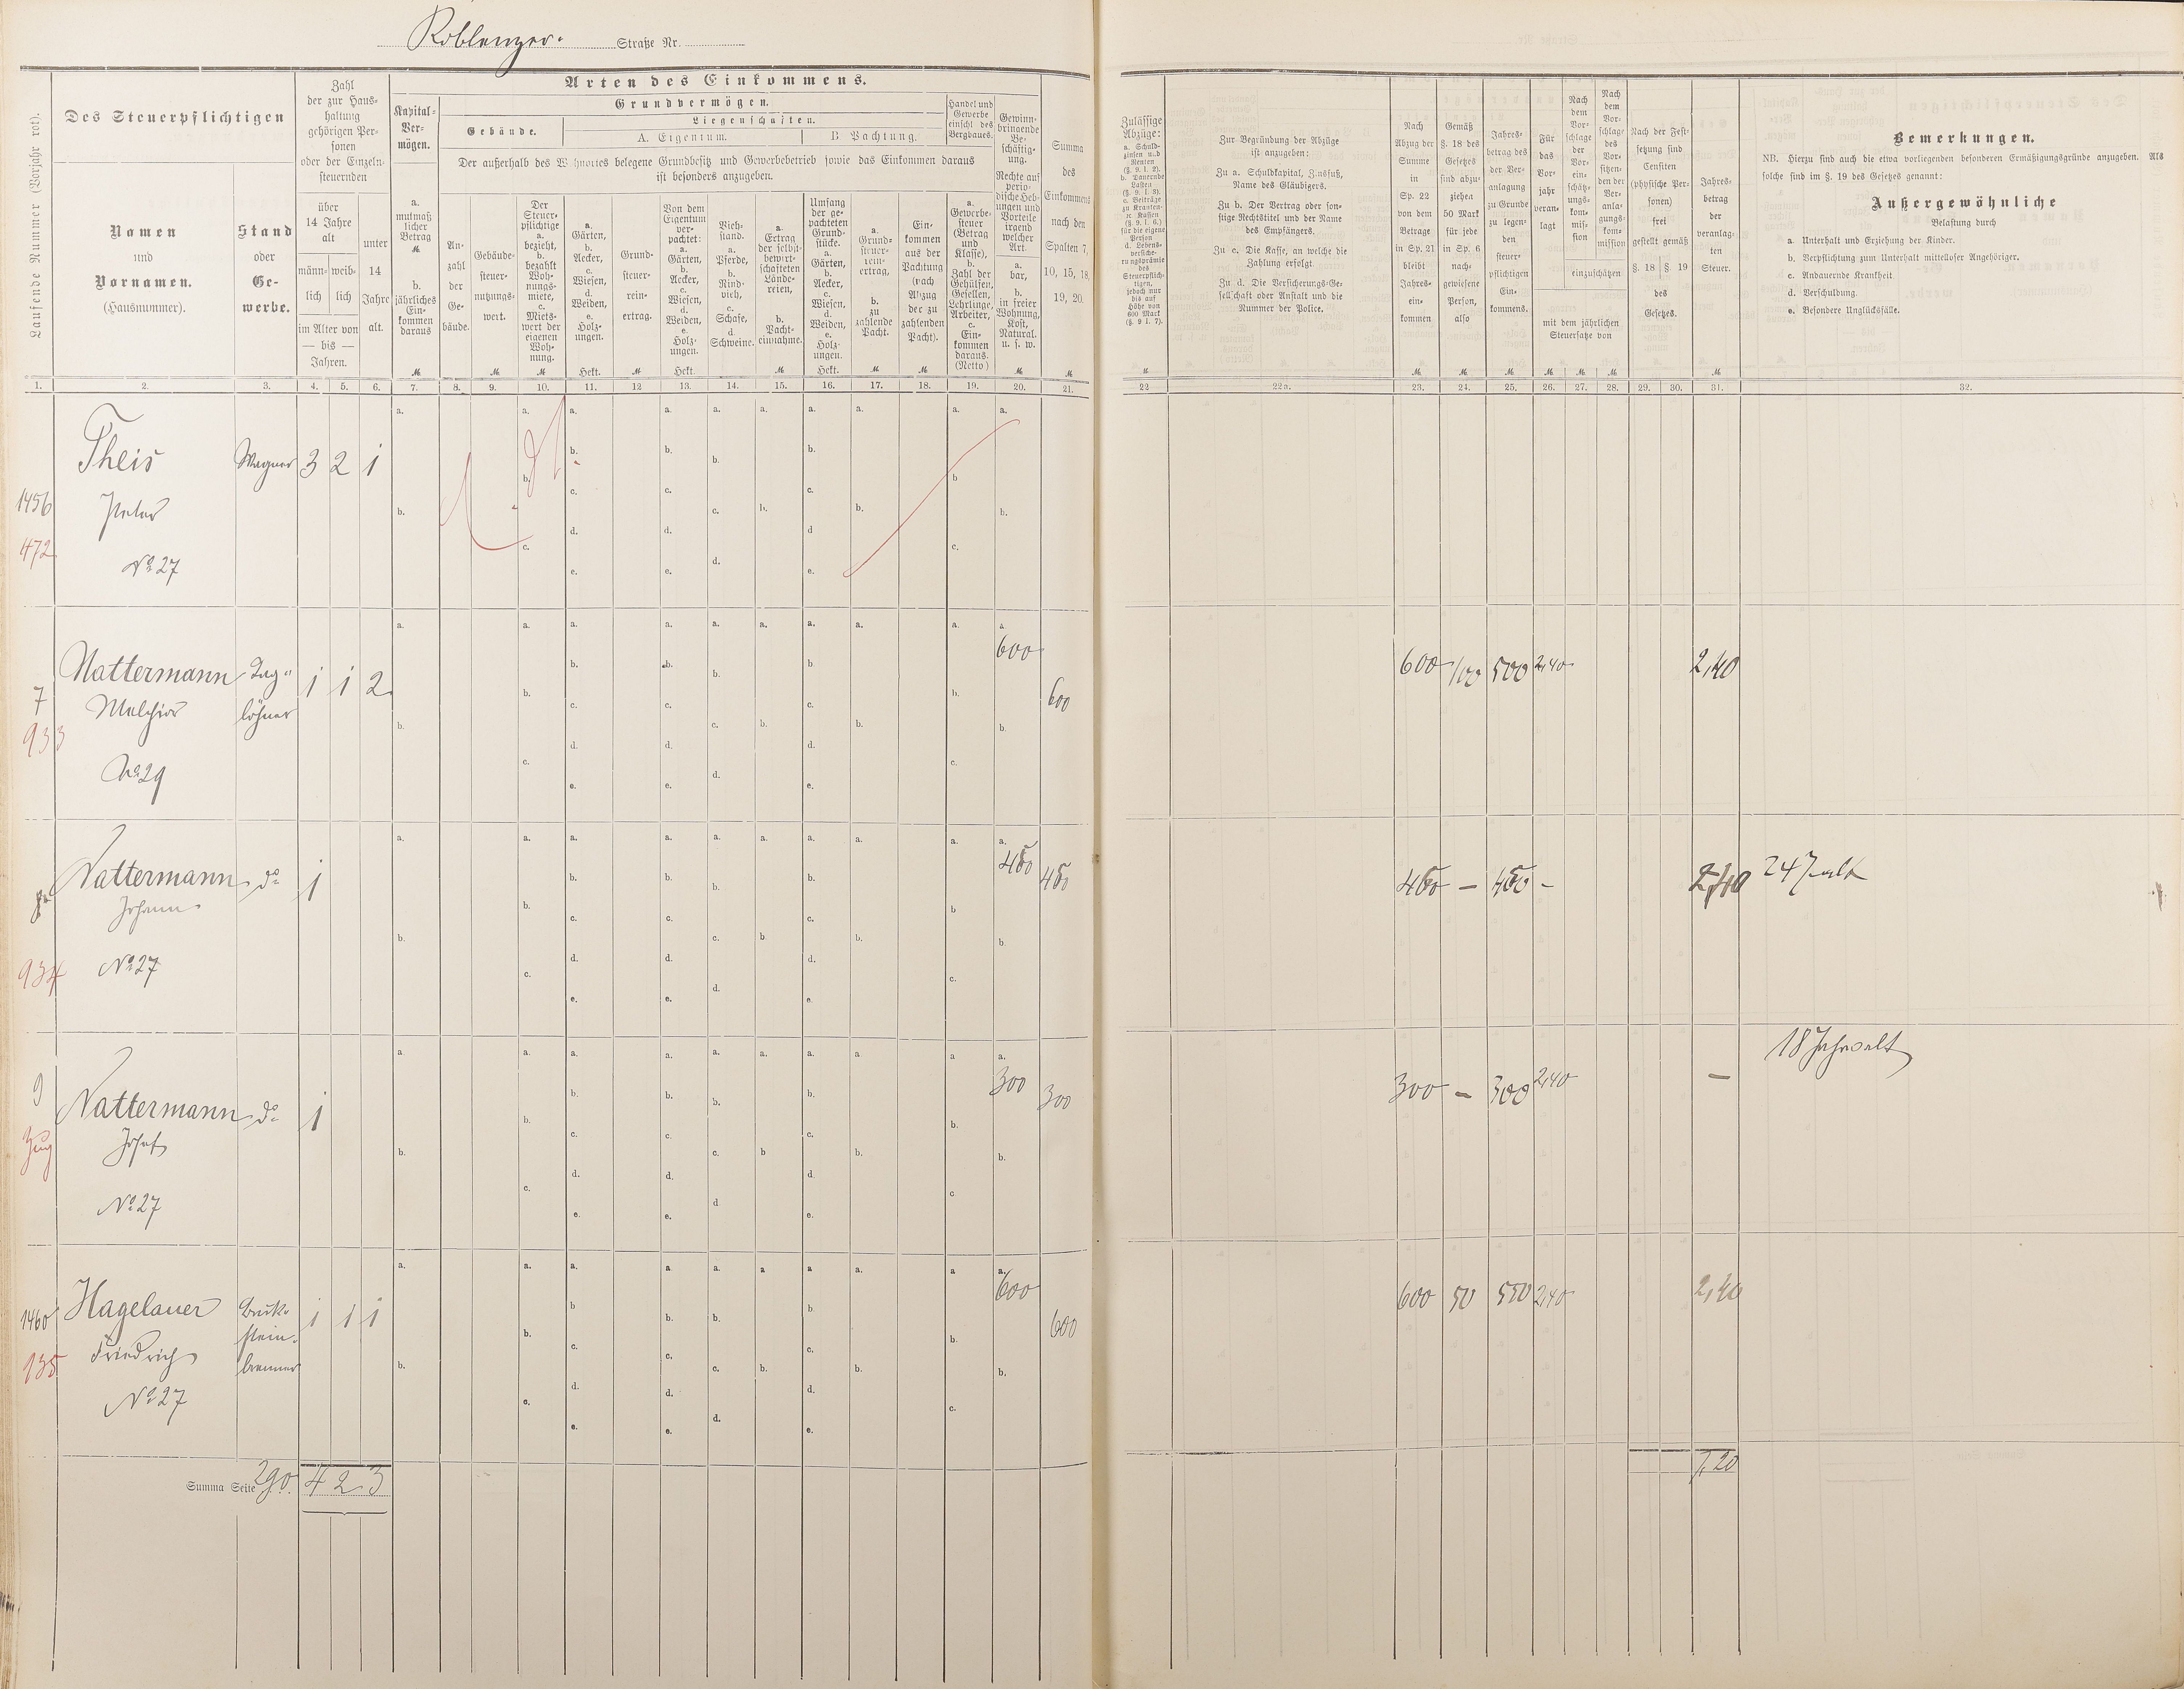 Koblenzer- Straße Nr.
Laufende Nummer (Vorjahr rot).
Des Steuerpflichtigen
Namen
und
Vornamen.
(Hausnummer).
Stand
oder
Ge-
werbe.
Zahl
der zur Haus-
haltung
gehörigen Per-
sonen
oder der Einzeln-
steuernden
über
14 Jahre
alt
männ- weib-
lich lich
im Alter von
— bis —
Jahren.
unter
14
Jahre
alt.
Arten des Einkommens.
Kapital-
Ver-
mögen.
a.
mutmaß-
licher
Betrag
M
b.
jährliches
Ein-
kommen
daraus
M
Grundvermögen.
Gebäude.
Liegenschaften.
A. Eigentum.
B. Pachtung.
Der außerhalb des Wohnortes belegene Grundbesitz und Gewerbebetrieb sowie das Einkommen daraus
ist besonders anzugeben.
An-
zahl
der
Ge-
bäude.
Gebäude-
steuer-
nutzungs-
wert.
M
Der
Steuer-
pflichtige
a.
bezieht,
b.
bezahlt
Woh-
nungs-
miete,
c.
Miets-
wert der
eigenen
Woh-
nung.
M
a.
Gärten,
b.
Aecker,
c.
Wiesen,
d.
Weiden,
e.
Holz-
ungen.
Hekt.
Grund-
steuer-
rein-
ertrag.
M
Von dem
Eigentum
ver-
pachtet:
a.
Gärten,
b.
Aecker,
c.
Wiesen,
d.
Weiden,
e.
Holz-
ungen.
Hekt.
Vieh-
stand.
a.
Pferde,
b.
Rind-
vieh,
c.
Schafe,
d.
Schweine.
a.
Ertrag
der selbst-
bewirt-
schafteten
Lände-
reien,
b.
Pacht-
einnahme.
M
Umfang
der ge-
pachteten
Grund-
stücke.
a.
Gärten,
b.
Aecker,
c.
Wiesen,
d.
Weiden,
e.
Holz-
ungen.
Hekt.
a.
Grund-
steuer-
rein-
ertrag,
b.
zu
zahlende
Pacht.
M
Ein-
kommen
aus der
Pachtung
(nach
Abzug
der zu
zahlenden
Pacht).
M
Handel und
Gewerbe
einschl. des
Bergbaues.
a.
Gewerbe-
steuer
(Betrag
und
Klasse),
b.
Zahl der
Gehülfen,
Gesellen,
Lehrlinge,
Arbeiter,
c.
Ein-
kommen
daraus.
(Netto)
Gewinn-
bringende
Be-
schäftig-
ung.
Rechte auf
perio-
dische Heb-
ungen und
Vorteile
irgend
welcher
Art.
a.
bar,
b.
in freier
Wohnung,
Kost,
Natural.
u. s. w.
M
Summa
des
Einkommens
nach den
Spalten 7,
10, 15, 18,
19, 20.
M
Zulässige
Abzüge:
a. Schuld-
zinsen und
Renten
(§. 9. I. 2).
b. Dauernde
Lasten
(§. 9. I. 3).
c. Beiträge
zu Kranken-
rc Kassen
(§. 9. I. 6.)
für die eigene
Person
d. Lebens-
versiche-
rungsprämie
des
Steuerpflich-
tigen,
jedoch nur
bis auf
Höhe von
600 Mark
(§. 9 I. 7).
M
Zur Begründung der Abzüge
ist anzugeben:
Zu a. Schuldkapital, Zinsfuß,
Name des Gläubigers.
Zu b. Der Vertrag oder son-
stige Rechtstitel und der Name
des Empfängers.
Zu c. Die Kasse, an welche die
Zahlung erfolgt.
Zu d. Die Versicherungs-Ge-
sellschaft oder Anstalt und die
Nummer der Police.
Nach
Abzug der
Summe
in
Sp. 22
von dem
Betrage
in Sp. 21
bleibt
Jahres-
ein-
kommen
M
Gemäß
§. 18 des
Gesetzes
sind abzu-
ziehen
50 Mark
für jede
in Sp. 6
nach-
gewiesene
Person,
also
M
Jahres-
betrag des
der Ver-
anlagung
zu Grunde
zu legen-
den
steuer-
pflichtigen
Ein-
kommens.
M
Für
das
Vor-
jahr
veran-
lagt
Nach
dem
Vor-
schlage
der
Vor-
ein-
schätz-
ungs-
kom-
mis-
sion
Nach
dem
Vor-
schlage
des
Vor-
sitzen-
den der
Ver-
anla-
gungs-
kom-
mission
einzuschätzen
mit dem jährlichen
Steuersatze von
M M M
Nach der Fest-
setzung sind
Censiten
(physische Per-
sonen)
frei
gestellt gemäß
§. 18 § 19
des
Gesetzes.
Jahres-
betrag
der
veranlag-
ten
Steuer.
M
Bemerkungen.
NB. Hierzu sind auch die etwa vorliegenden besonderen Ermäßigungsgründe anzugeben. Als
solche sind im §. 19 des Gesetzes genannt:
Außergewöhnliche
Belastung durch
a. Unterhalt und Erziehung der Kinder.
b. Verpflichtung zum Unterhalt mittelloser Angehöriger.
c. Andauernde Krankheit
d. Verschuldung.
e. Besondere Unglücksfälle.
1. 2. 3. 4. 5. 6. 7. 8. 9. 10. 11. 12 13. 14. 15. 16. 17. 18. 19. 20. 21. 22 22a. 23. 24. 25. 26. 27. 28. 29. 30. 31. 32.
1456
472
Theis Wagner 3 2 1
Peter
No 27
7
933
Nattermann Tag- 1 1 2 600 600 600 100 500 2,40 2,40
Melchior löhner
No 29
8
934
Nattermann do 1 450 450 450 — 450 — 24 J. alt
Johann
No 27
9
Zug
Nattermann do 1 300 300 300 — 300 2,40 — 18 Jahre alt
Josef
No 27
1460
135
Hagelauer 1 1 1 600 600 600 50 550 2,40 2,40
stein-
brenner
Friedrich
No 27
Summa Seite 290. 4 2 3 7,20